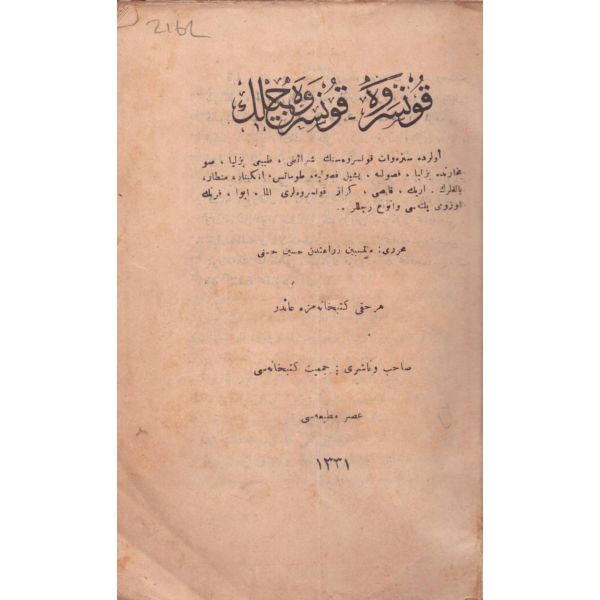 2162
قونسروه - قونسروه جیلك
أولرده سبزه‌وات قونسروه‌سنك شرائطی ، طبیعی بزلیا ، صو
بخارنده بزلیا ، فصولیه ، یشیل فصولیه ، طوماتس ، انكینار ، منطار ،
بالقلرك ، اریك ، قایصی ، كراز قونسروه‌لری الما ، ایوا ، فرنك
اوزومی پلته‌سی وانواع رچللر ..
محرری : منتسبین زراعتدن حسین حسنی
هر حقی كتبخانه مزه عائدر
صاحب وناشری : جمعیت كتبخانه‌سی
عصر مطبعه‌سی
١٣٣١